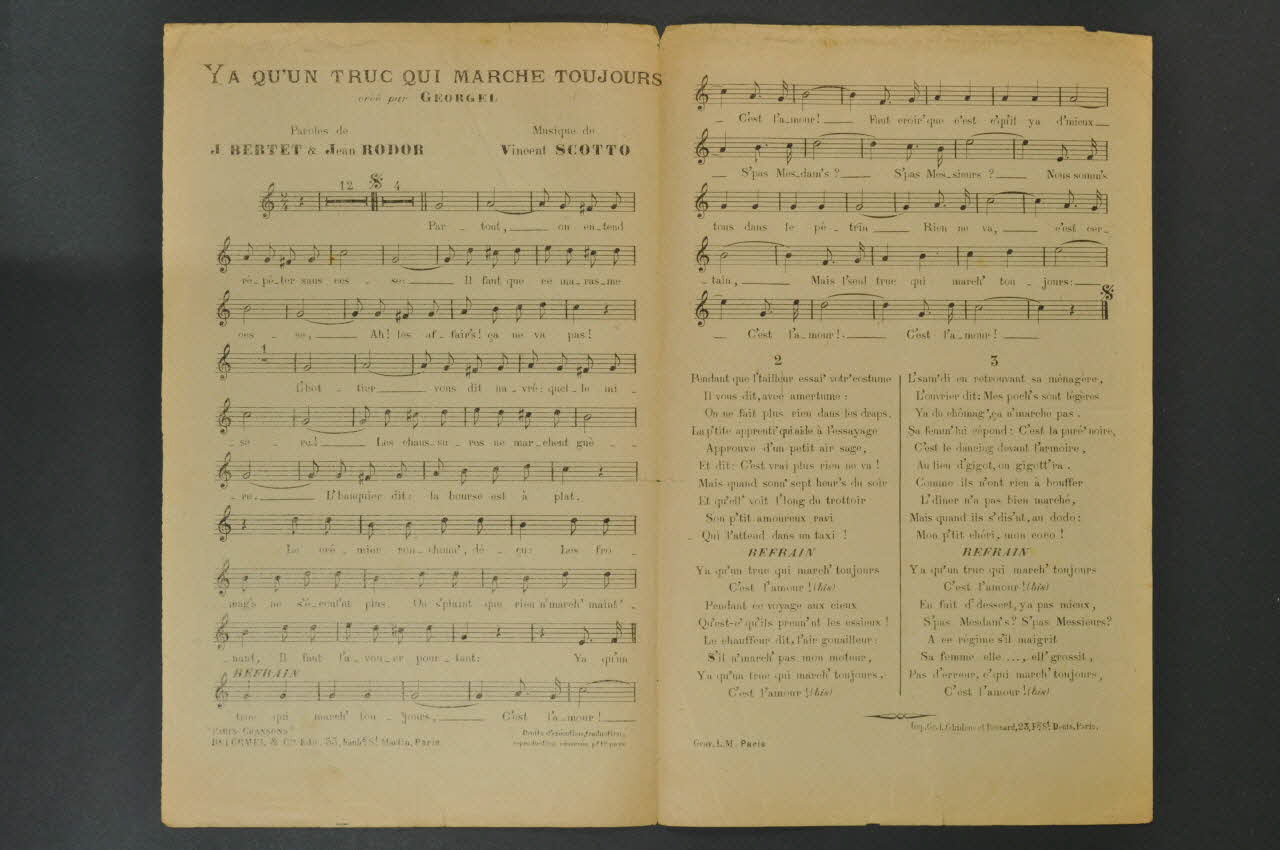 YA QU'UN TRUC QUI MARCHE TOUJOURS
créé par GEORGEL
Paroles de
J BERTET & Jean RODOR
Musique de
Vincent SCOTTO
12 4
Par - tout, on en-tend
ré-pé-ter sans ces - se: Il faut que ce ma-ras-me
ces - se, Ah! les af-fair's! ça ne va pas!
1
L'bot - tier vous dit na-vré: quel-le mi -
sè - re! Les chaus-su-res ne mar-chent guè -
- re. L'banquier dit: la bourse est à plat.
Le cré-mier ron-chonn', dé-çu: Les fro -
mag's ne s'é-coul'nt plus. On s'plaint que rien n'march' maint' -
nant, Il faut l'a-vou-er pour-tant: Ya qu'un
REFRAIN
truc qui march' tou - jours, C'est l'amour!
PARIS-CHANSONS
DELORMEL & Cie Edit. 55, Faubg St Martin, Paris.
Droits d'exécution, traduction,
reproduction réservés pr ts pays
C'est l'a-mour! Faut croir' que c'est c'qu'il ya d'mieux
S'pas Mes-dam's? S'pas Mes-sieurs? Nous somm's
tous dans le pé-trin Rien ne va, c'est cer -
- tain, Mais l'seul truc qui march' tou - jours:
C'est l'a-mour! C'est l'a-mour!
2
Pendant que l'tailleur essai' votr' costume
Il vous dit, avec amertume:
On ne fait plus rien dans les draps.
La p'tite apprenti' qui aide à l'essayage
Approuve d'un petit air sage,
Et dit: C'est vrai plus rien ne va!
Mais quand sonn' sept heur's du soir
Et qu'ell' voit l'long du trottoir
Son p'tit amoureux ravi
Qui l'attend dans un taxi!
REFRAIN
Ya qu'un truc qui march' toujours
C'est l'amour! (bis)
Pendant ce voyage aux cieux
Qu'est-c' qu'ils prenn'nt les essieux!
Le chauffeur dit, l'air gouailleur:
S'il n'march' pas mon moteur,
Ya qu'un truc qui march' toujours,
C'est l'amour! (bis)
3
L'sam'di en retrouvant sa ménagère,
L'ouvrier dit: Mes poch's sont légères
Ya du chômag', ça n'marche pas.
Sa femm' lui répond: C'est la puré' noire,
C'est le dancing devant l'armoire,
Au lieu d'gigot, on gigott'ra.
Comme ils n'ont rien à bouffer
L'dîner n'a pas bien marché,
Mais quand ils s'dis'nt, au dodo:
Mon p'tit chéri, mon coco!
REFRAIN
Ya qu'un truc qui march' toujours
C'est l'amour! (bis)
En fait d'dessert, ya pas mieux,
S'pas Mesdam's? S'pas Messieurs?
A ce régime s'il maigrit
Sa femme elle ...., ell' grossit,
Pas d'erreur, c'qui march' toujours,
C'est l'amour! (bis)
Grav. L.M. Paris
23, Fg St Denis, Paris.